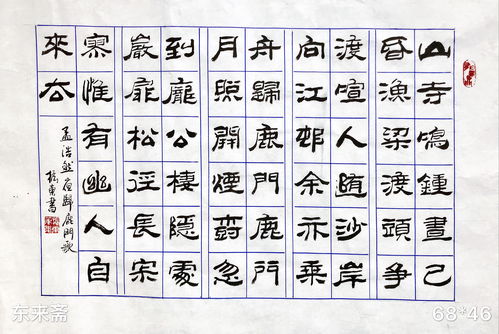 山寺鳴鍾晝已
昏漁梁渡頭爭
渡喧人随沙岸
向江邨余亦乘
舟歸鹿門鹿門
月照開煙忽
到龐公棲隱處
巖扉松徑長寂
寥惟有幽人自
來去
孟浩然夜歸鹿門歌
東書
东来斋
68*46